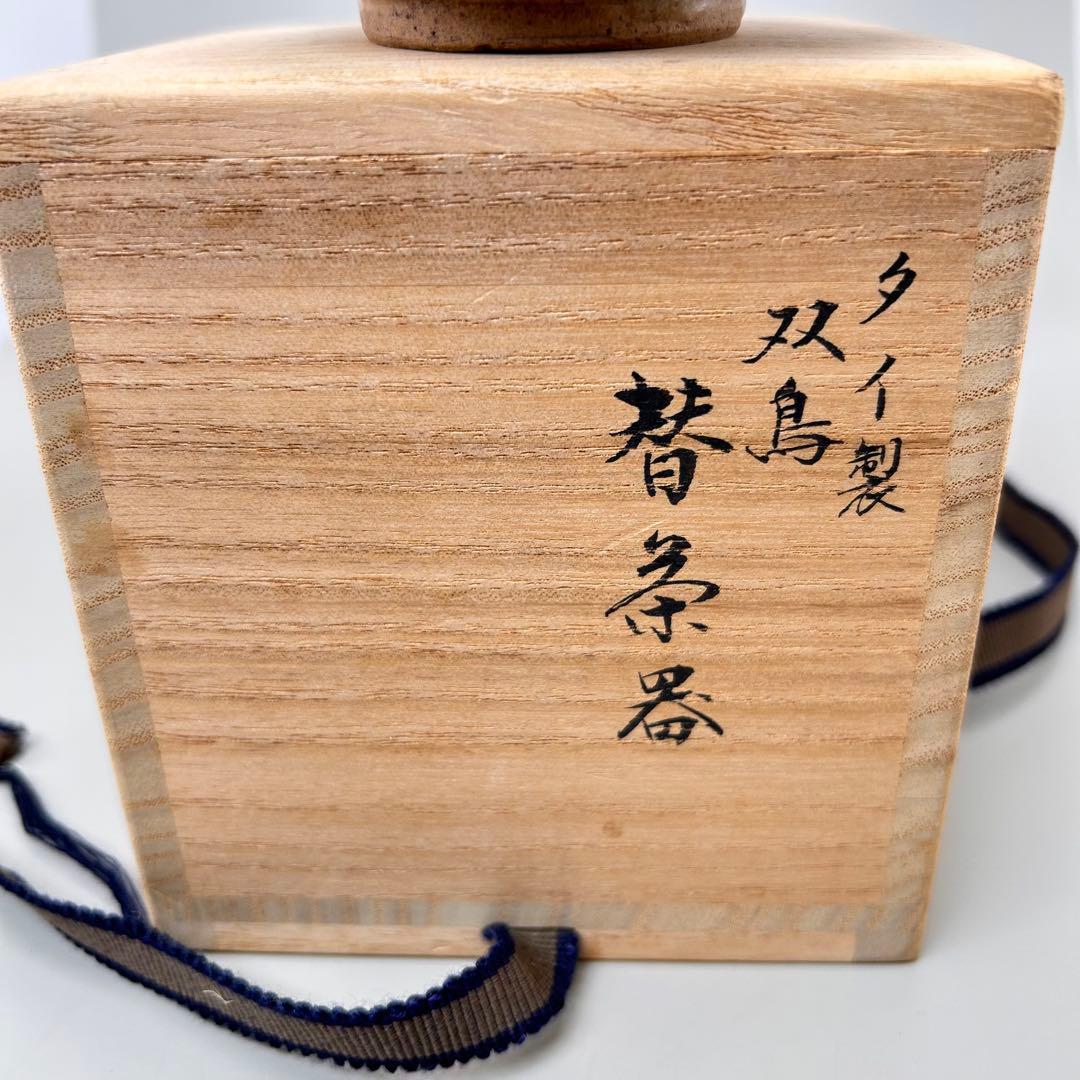 タイ製
双鳥
替茶器